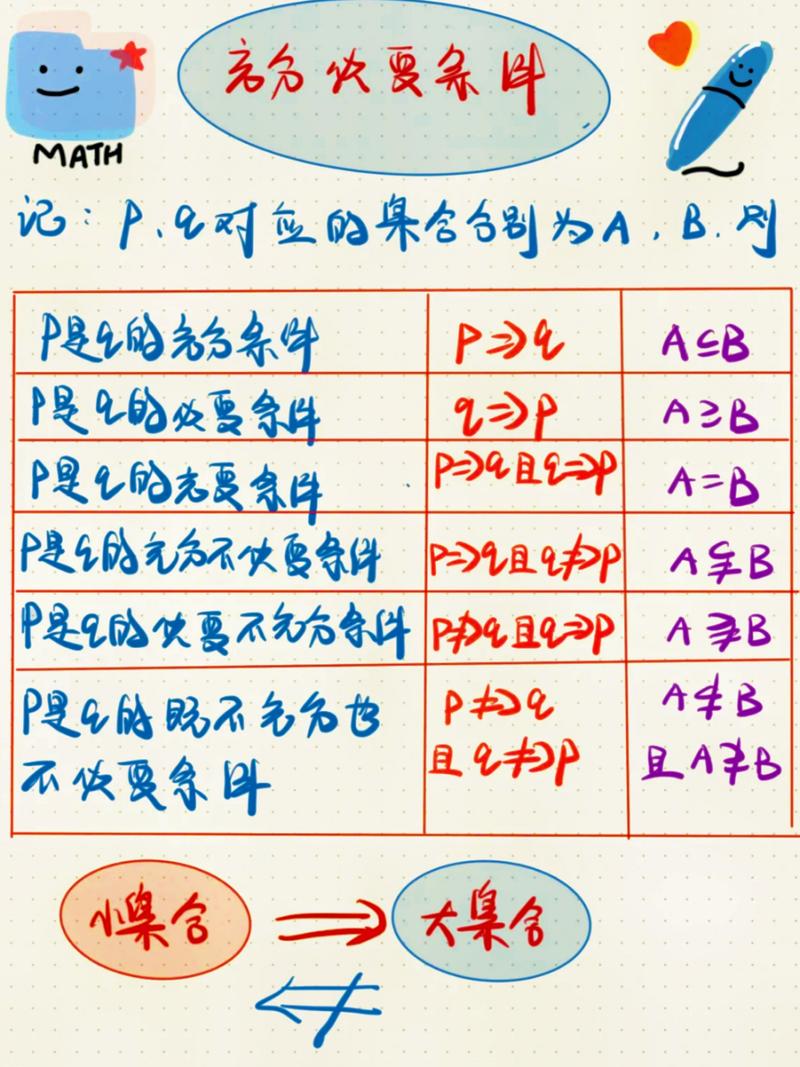 充分必要条件
MATH
记：P、q对应的集合分别为A，B，则
P是q的充分条件 P⇒q A⊆B
P是q的必要条件 q⇒P A⊇B
P是q的充要条件 P⇒q且q⇒P A=B
P是q的充分不必要条件 P⇒q且q⇏P A⊊B
P是q的必要不充分条件 P⇏q且q⇒P A⊋B
P是q的既不充分也 P⇏q A⊈B
不必要条件 且q⇏P 且A⊉B
小集合 ⇒ 大集合
⇍